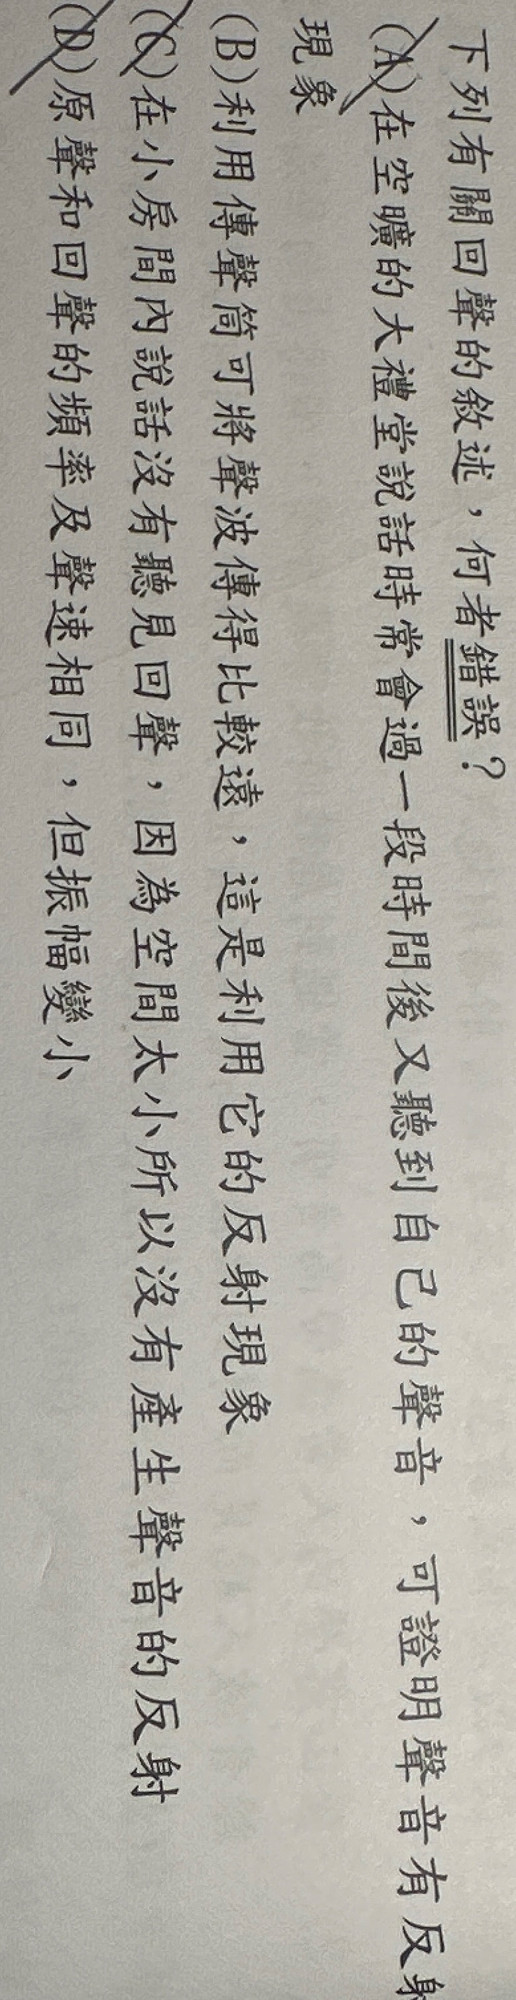 下列有關回聲的敘述，何者錯誤？
(A)在空曠的大禮堂說話時常會過一段時間後又聽到自己的聲音，可證明聲音有反射
現象
(B)利用傳聲筒可將聲波傳得比較遠，這是利用它的反射現象
(C)在小房間內說話沒有聽見回聲，因為空間太小所以沒有產生聲音的反射
(D)原聲和回聲的頻率及聲速相同，但振幅變小